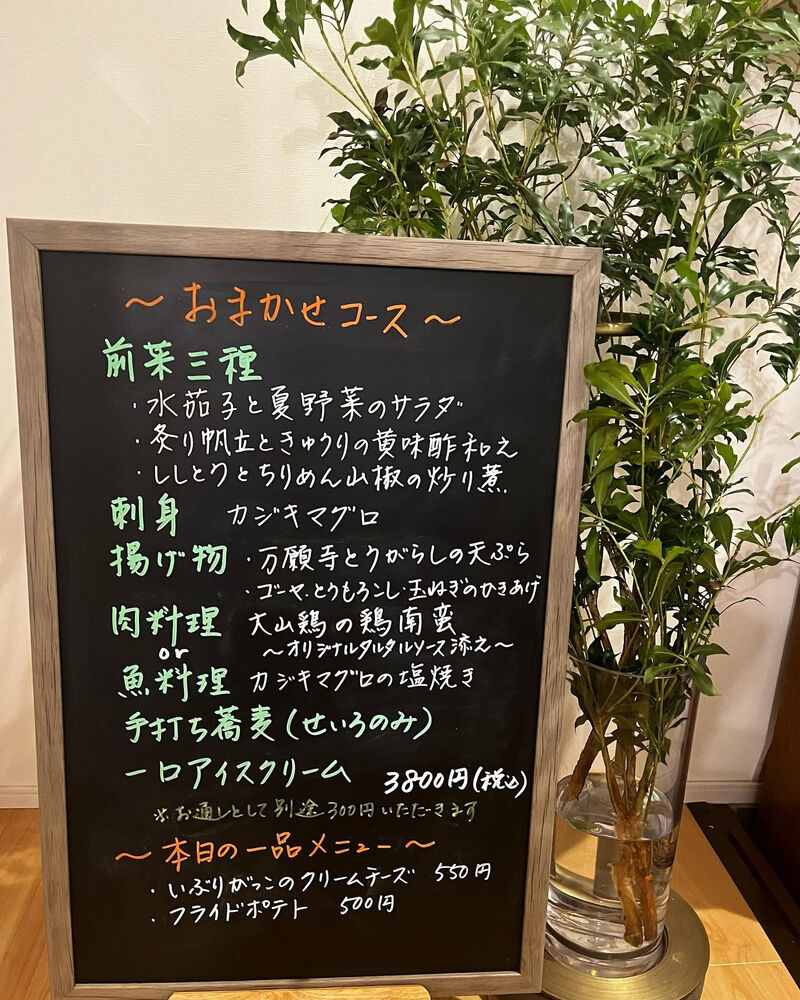 ～おまかせコース～
前菜三種
・水茄子と夏野菜のサラダ
・炙り帆立ときゅうりの黄味酢和え
・ししとうとちりめん山椒の炒り煮
刺身 カジキマグロ
揚げ物 ・万願寺とうがらしの天ぷら
・ゴーヤ、とうもろこし・玉ねぎのかきあげ
肉料理 大山鶏の鶏南蛮
or ～オリジナルタルタルソース添え～
魚料理 カジキマグロの塩焼き
手打ち蕎麦(せいろのみ)
一口アイスクリーム 3800円(税込)
※お通しとして別途300円いただきます
～本日の一品メニュー～
・いぶりがっこのクリームチーズ 550円
・フライドポテト 500円